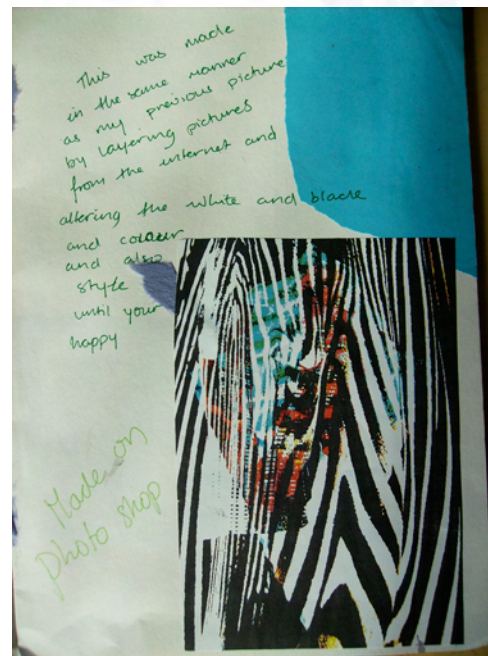 This was made
in the same manner
as my previous picture
by layering pictures
from the internet and
altering the white and black
and colour
and also
style
until your
happy
Made on
photo shop